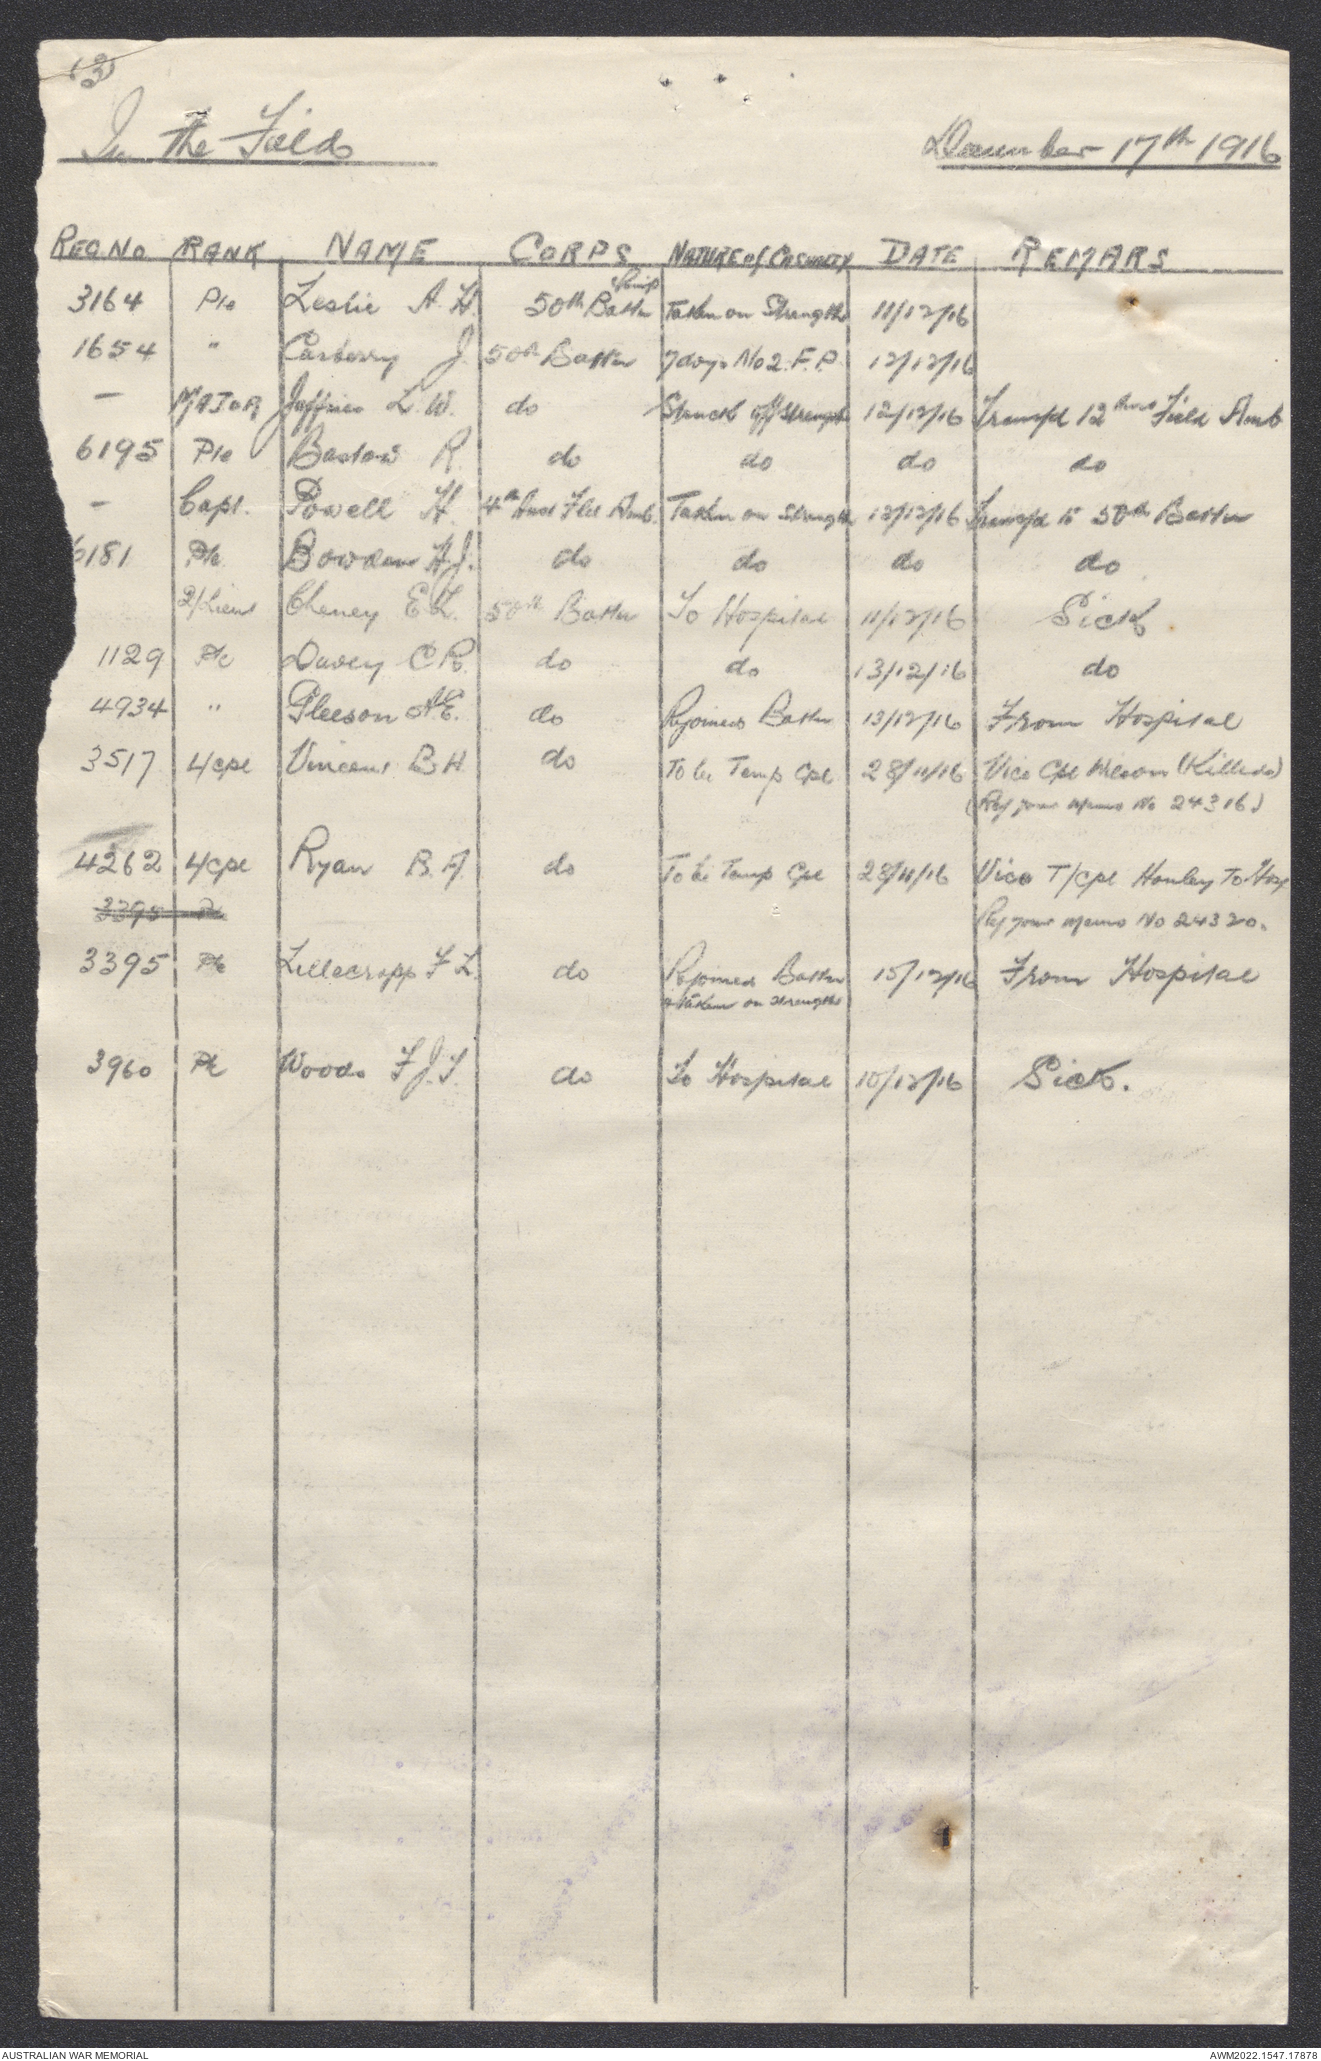 (3)
In the Field December 17th 1916
REG. NO RANK NAME CORPS NATURE of CASUALTY DATE REMARS
3164 Pte Leslie A. H. 50th Battn Taken on Strength 11/12/16
1654 " Carberry J. 50th Battn 7 days No 2. F. P. 12/12/16
— MAJOR Jeffries L. W. do Struck off strength 12/12/16 Transfd 12th Aust Field Amb
6195 Pte Bastow R. do do do do
— Capt. Powell H. 4th Aust Fld Amb. Taken on Strength 12/12/16 Transfd to 50th Battn
6181 Pte Bowden H. J. do do do do
2/Lieut Cheney E. L. 50th Battn To Hospital 11/12/16 Sick
1129 Pte Davey C R. do do 13/12/16 do
4934 " Gleeson A. E. do Rejoined Battn 13/12/16 From Hospital
3517 L/cpl Vincent B. H. do To be Temp Cpl 28/11/16 Vice Cpl Wilson (Killed)
(Ref your memo No 24316)
4262 L/cpl Ryan B. A. do To be Temp Cpl 28/11/16 Vice T/Cpl Hanley To Hosp
3395 Pte Ref your memo No 24320.
3395 Pte Lillecrapp F L. do Rejoined Battn 15/12/16 From Hospital
& taken on strength
3960 Pte Woods F. J. T. do To Hospital 10/12/16 Sick.
AUSTRALIAN WAR MEMORIAL AWM2022.1547.17878